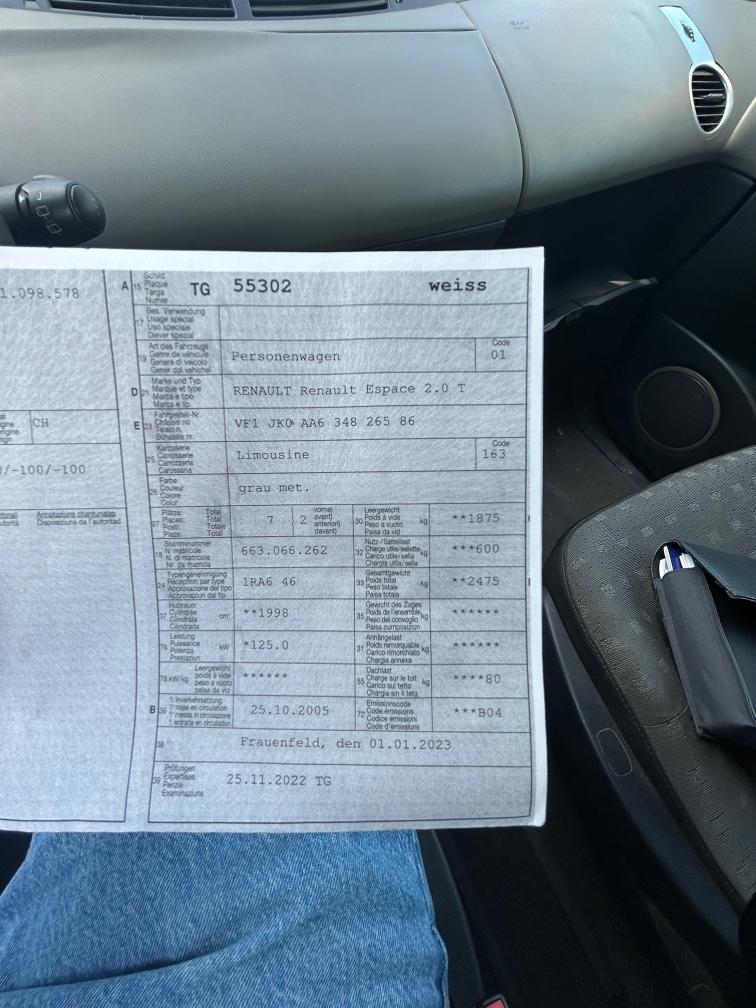 1.098.578
A 15 Schild Plaque Targa Numer TG 55302 weiss
17 Bes. Verwendung
Usage spécial
Uso speciale
Diever spezial
19 Art des Fahrzeugs
Genre de véhicule
Genere di veicolo
Gener dal vehichel
Personenwagen
Code
01
D 21 Marke und Typ
Marque et type
Marca e tipo
Marca e tip
RENAULT Renault Espace 2.0 T
CH
E 23 Fahrgestell-Nr.
Châssis no
Telaio n.
Schassis nr.
VF1 JK0 AA6 348 265 86
25 Karosserie
Carrosserie
Carrozzeria
Carossaria
Limousine
Code
163
/-100/-100
26 Farbe
Couleur
Colore
Colur
grau met.
27 Plätze: Total
Places: Total
Posti: Totale
Plazs: Total
7
2
vorne)
avant)
anteriori)
davant)
30 Leergewicht
Poids à vide
Peso a vuoto
Paisa da vid
kg
**1875
18 Stammnummer
N° matricule
N. di matricola
Nr. da matricla
663.066.262
32 Nutz-/Sattellast
Charge utile/sellette
Carico utile/sella
Chargia utila/sella
kg
***600
24 Typengenehmigung
Réception par type
Approvazione del tipo
Approvaziun dal tip
1RA6 46
33 Gesamtgewicht
Poids total
Peso totale
Paisa totala
kg
**2475
37 Hubraum
Cylindrée
Cilindrata
Cilindrada
cm³
**1998
35 Gewicht des Zuges
Poids de l'ensemble
Peso del convoglio
Paisa cumposiziun
kg
******
76 Leistung
Puissance
Potenza
Prestaziun
kW
*125.0
31 Anhängelast
Poids remorquable
Carico rimorchiato
Chargia annexa
kg
******
78 kW/kg
Leergewicht
poids à vide
peso a vuoto
paisa da vid
******
55 Dachlast
Charge sur le toit
Carico sul tetto
Chargia sin il tetg
kg
****80
B 36 1. Inverkehrsetzung
1re mise en circulation
1a messa in circolazione
1. entrada en circulaziun
25.10.2005
72 Emissionscode
Code émissions
Codice emissioni
Code d'emissiuns
***B04
38 Frauenfeld, den 01.01.2023
39 Prüfungen
Expertises
Perizie
Examinaziuns
25.11.2022 TG